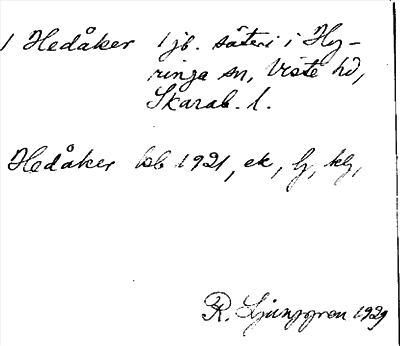 1 Hedåker 1 jb. säteri i Hy-
ringa sn, Viste hd,
Skarab. l.
Hedåker bb 1921, ek, lj, klj,
R. Ljunggren 1929